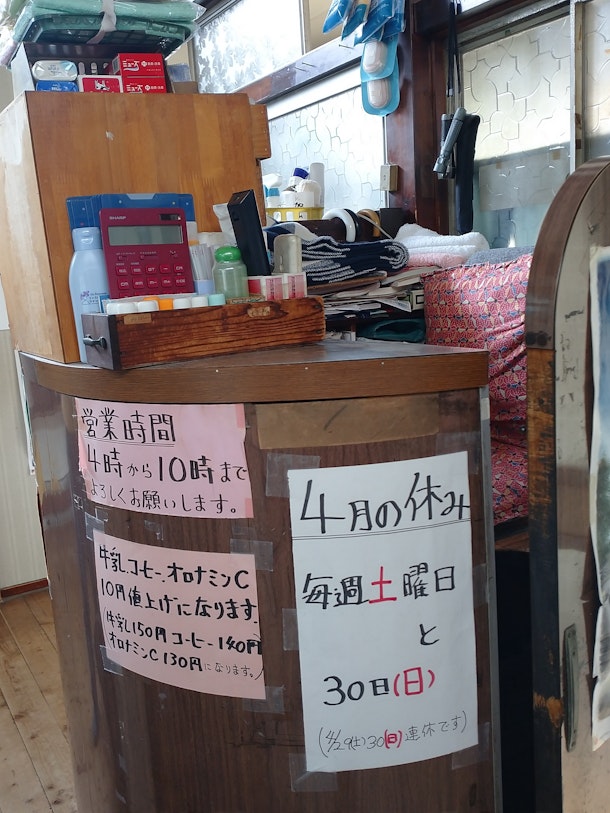 ミューズ
ミューズ
SHARP
営業時間
4時から10時まで
よろしくお願いします。
牛乳.コーヒー.オロナミンC
10円値上げになります.
(牛乳150円コーヒー140円
オロナミンC 130円になります。)
4月の休み
毎週土曜日
と
30日(日)
(4/29(土)30(日)連休です)